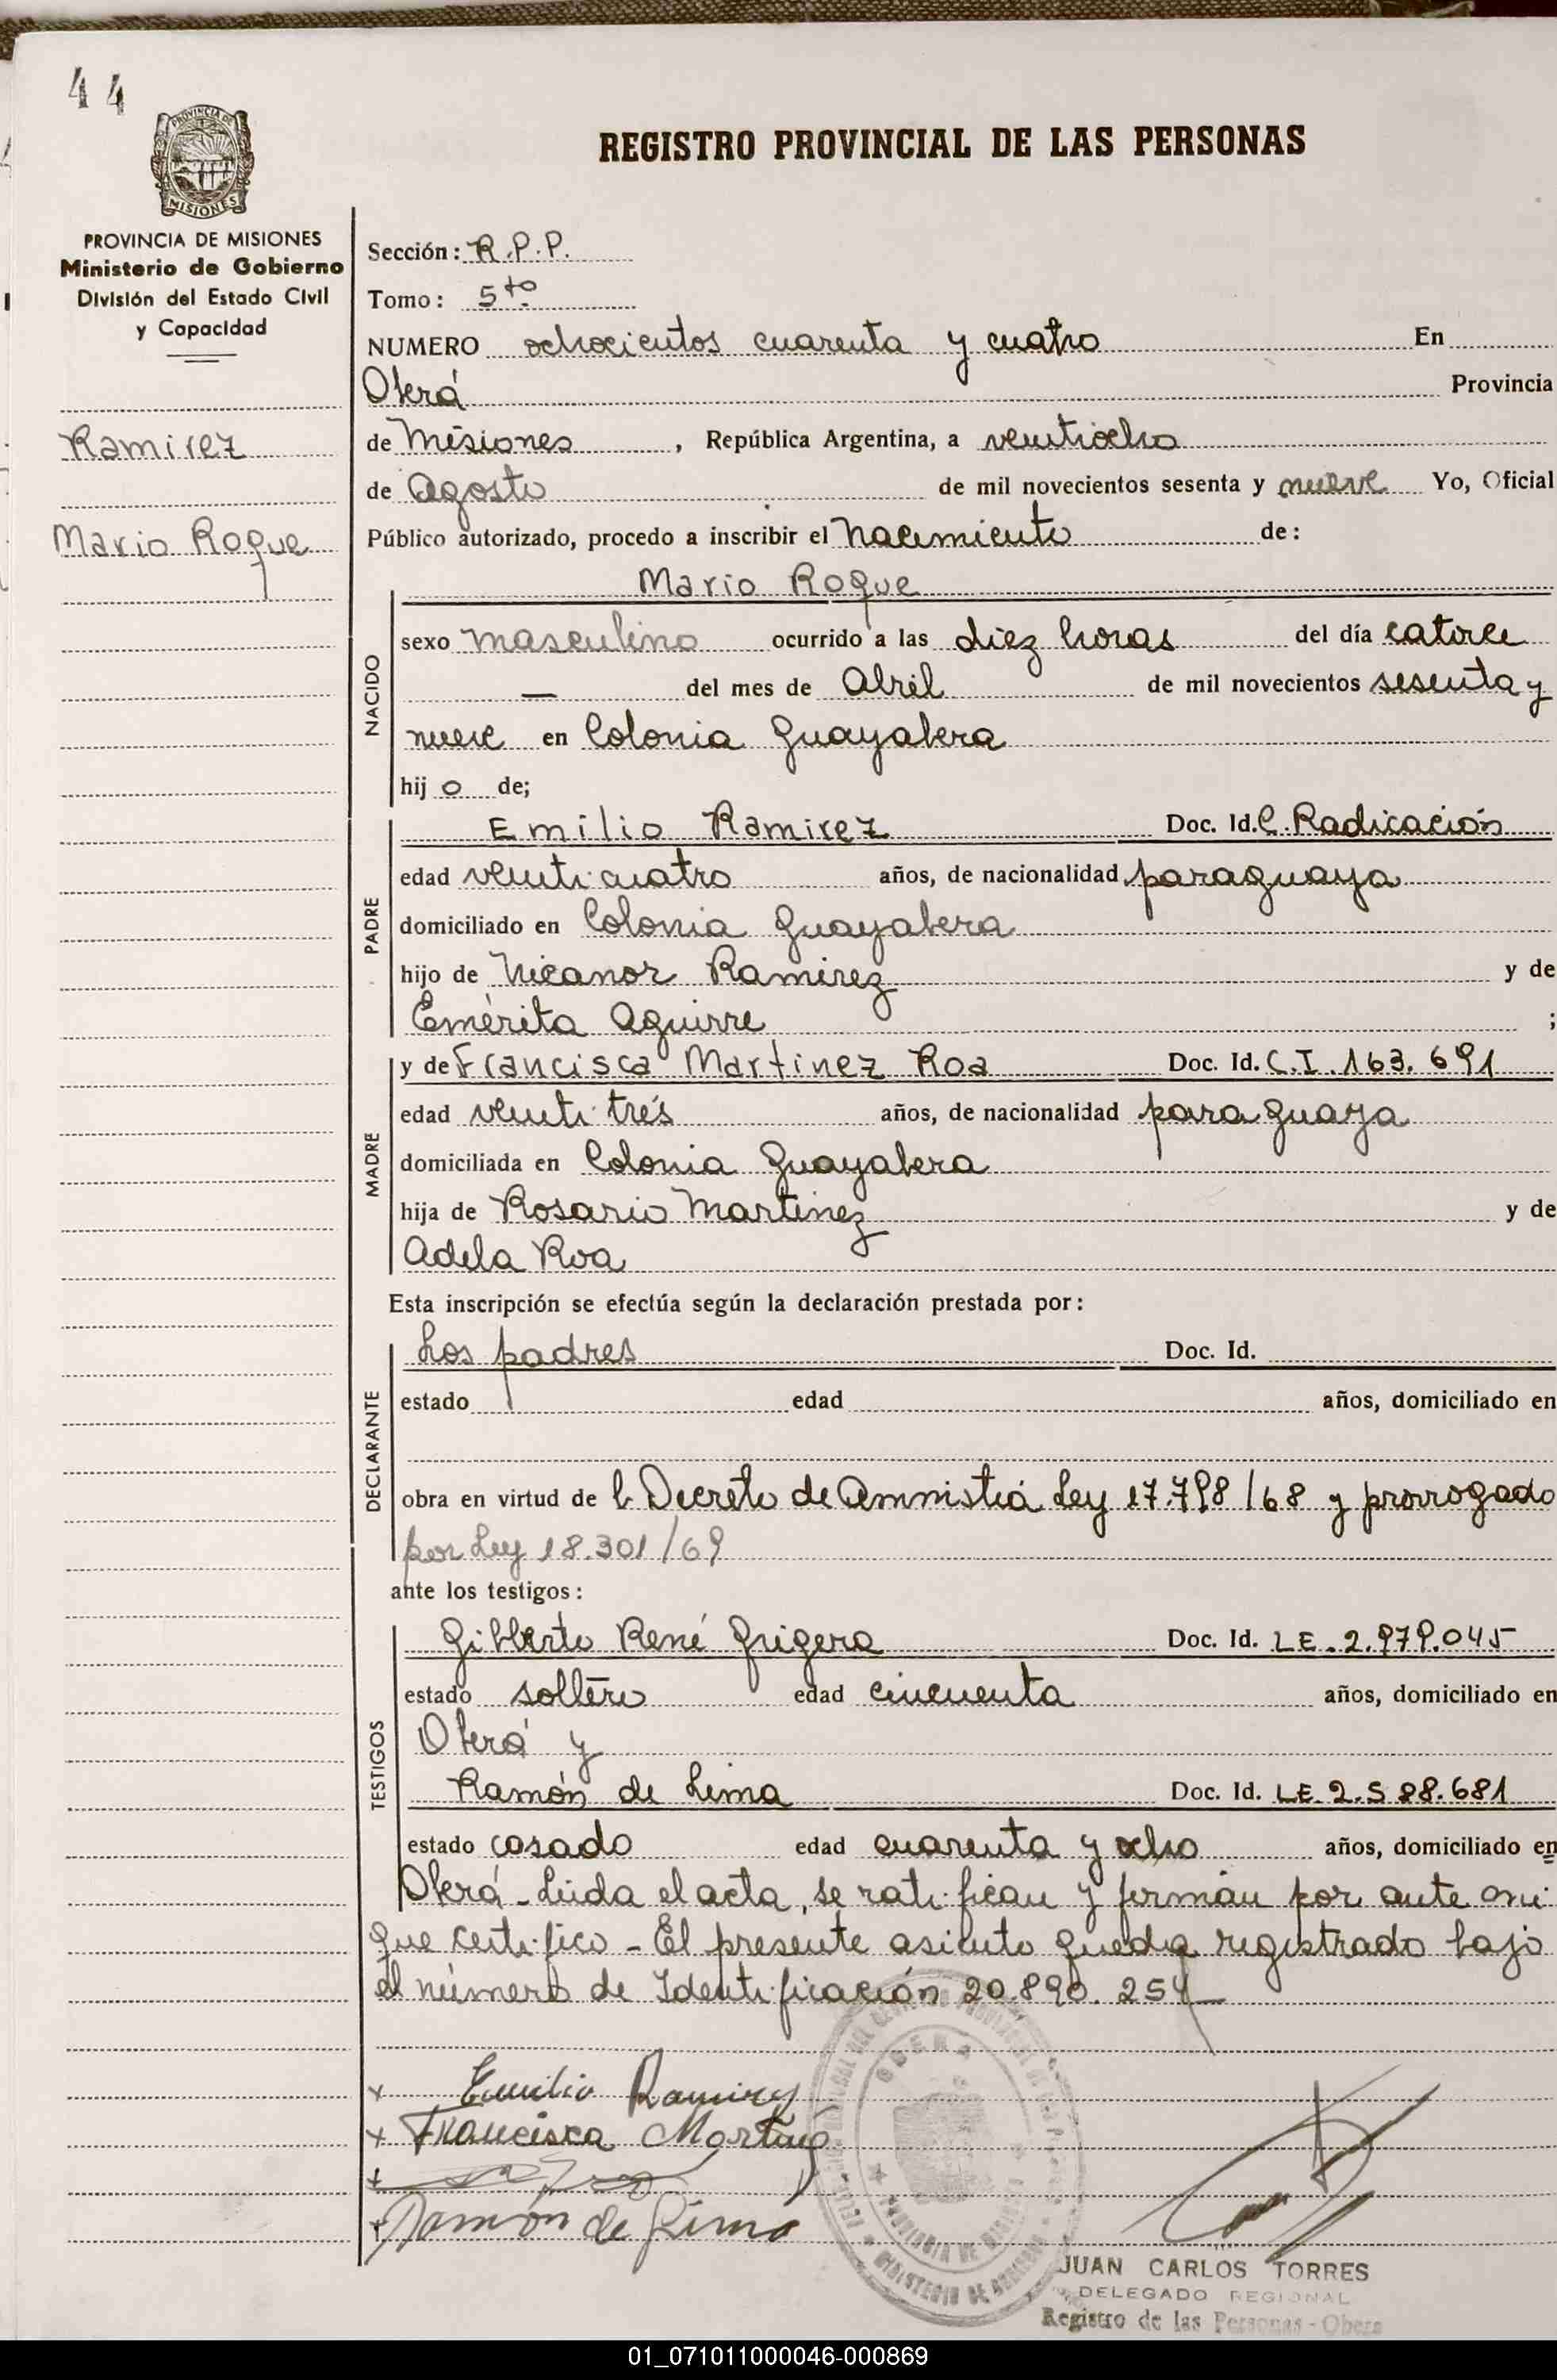 44
PROVINCIA DE
MISIONES
REGISTRO PROVINCIAL DE LAS PERSONAS
PROVINCIA DE MISIONES
Ministerio de Gobierno
División del Estado Civil
y Capacidad
Ramirez
Mario Roque
Sección: R.P.P.
Tomo: 5to
NUMERO ochocientos cuarenta y cuatro En
Oberá Provincia
de Misiones, República Argentina, a veintiocho
de Agosto de mil novecientos sesenta y nueve Yo, Oficial
Público autorizado, procedo a inscribir el Nacimiento de:
Mario Roque
NACIDO
sexo masculino ocurrido a las diez horas del día catorce
— del mes de Abril de mil novecientos sesenta y
nueve en Colonia Guayabera
hijo de;
PADRE
Emilio Ramirez Doc. Id. C. Radicación
edad veinticuatro años, de nacionalidad paraguaya
domiciliado en Colonia Guayabera
hijo de Nicanor Ramirez y de
Emérita Aguirre ;
MADRE
y de Francisca Martinez Roa Doc. Id. C.I. 163.691
edad veintitrés años, de nacionalidad paraguaya
domiciliada en Colonia Guayabera
hija de Rosario Martinez y de
Adela Roa
Esta inscripción se efectúa según la declaración prestada por:
DECLARANTE
Los padres Doc. Id.
estado edad años, domiciliado en
obra en virtud de Decreto de Amnistiá Ley 17.798/68 y prorrogado
por Ley 18.301/69
ante los testigos:
TESTIGOS
Gilberto René Grigera Doc. Id. LE. 2.979.045
estado soltero edad cincuenta años, domiciliado en
Oberá y
Ramón de Lima Doc. Id. LE. 2.588.681
estado casado edad cuarenta y ocho años, domiciliado en
Oberá - Leida el acta, se ratifican y firman por ante mi
que certifico - El presente asiento queda registrado bajo
el número de Identificación 20.890.254
x Emilio Ramirez
x Francisca Martinez
x
x Ramón de Lima
OBERA
PROVINCIA DE MISIONES
MINISTERIO DE GOBIERNO
JUAN CARLOS TORRES
DELEGADO REGIONAL
Registro de las Personas - Obera
01_071011000046-000869